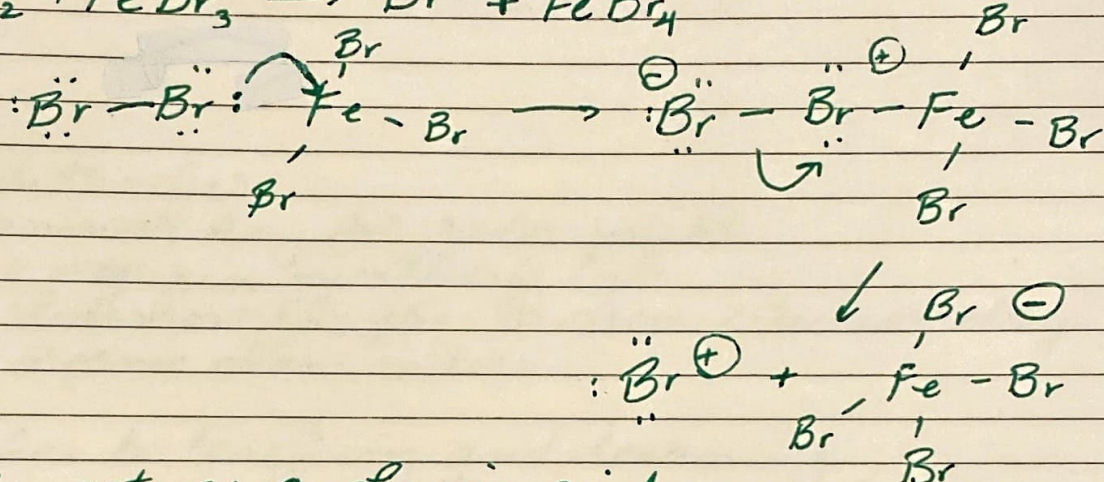 2 + FeBr3 → Br + FeBr4
Br ⊕ Br
:Br — Br : Fe - Br → ⊖ :Br — Br — Fe - Br
Br Br
Br ⊖
:Br ⊕ + Fe - Br
Br Br